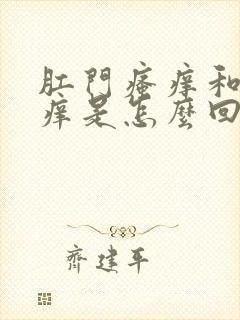 肛門瘙痒和
痒是怎麼回
齊建平